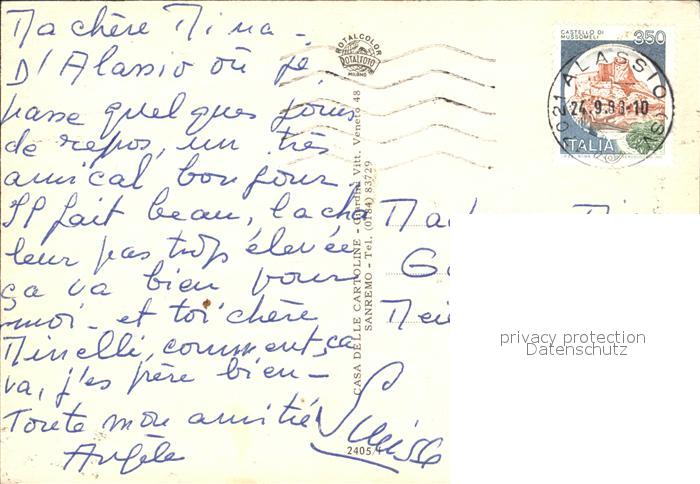 Ma chère Mina -
D'Alassio où je
passe quelques jours
de repos, un très
amical bonjour.
Il fait beau, la cha
leur pas trop élevée
ça va bien pour
moi - et toi chère
Minelli, comment ça
va, j'espère bien -
Toute mon amitié
Angèle
ROTALCOLOR
ROTALFOTO
MILANO
CASTELLO DI
MUSSOMELI
350
ITALIA
ALASSIO (SV)
24.9.
CASA DELLE CARTOLINE - Giardini Vitt. Veneto 48
SANREMO - Tel. (0184) 83729
2405/
Suisse
privacy protection
Datenschutz